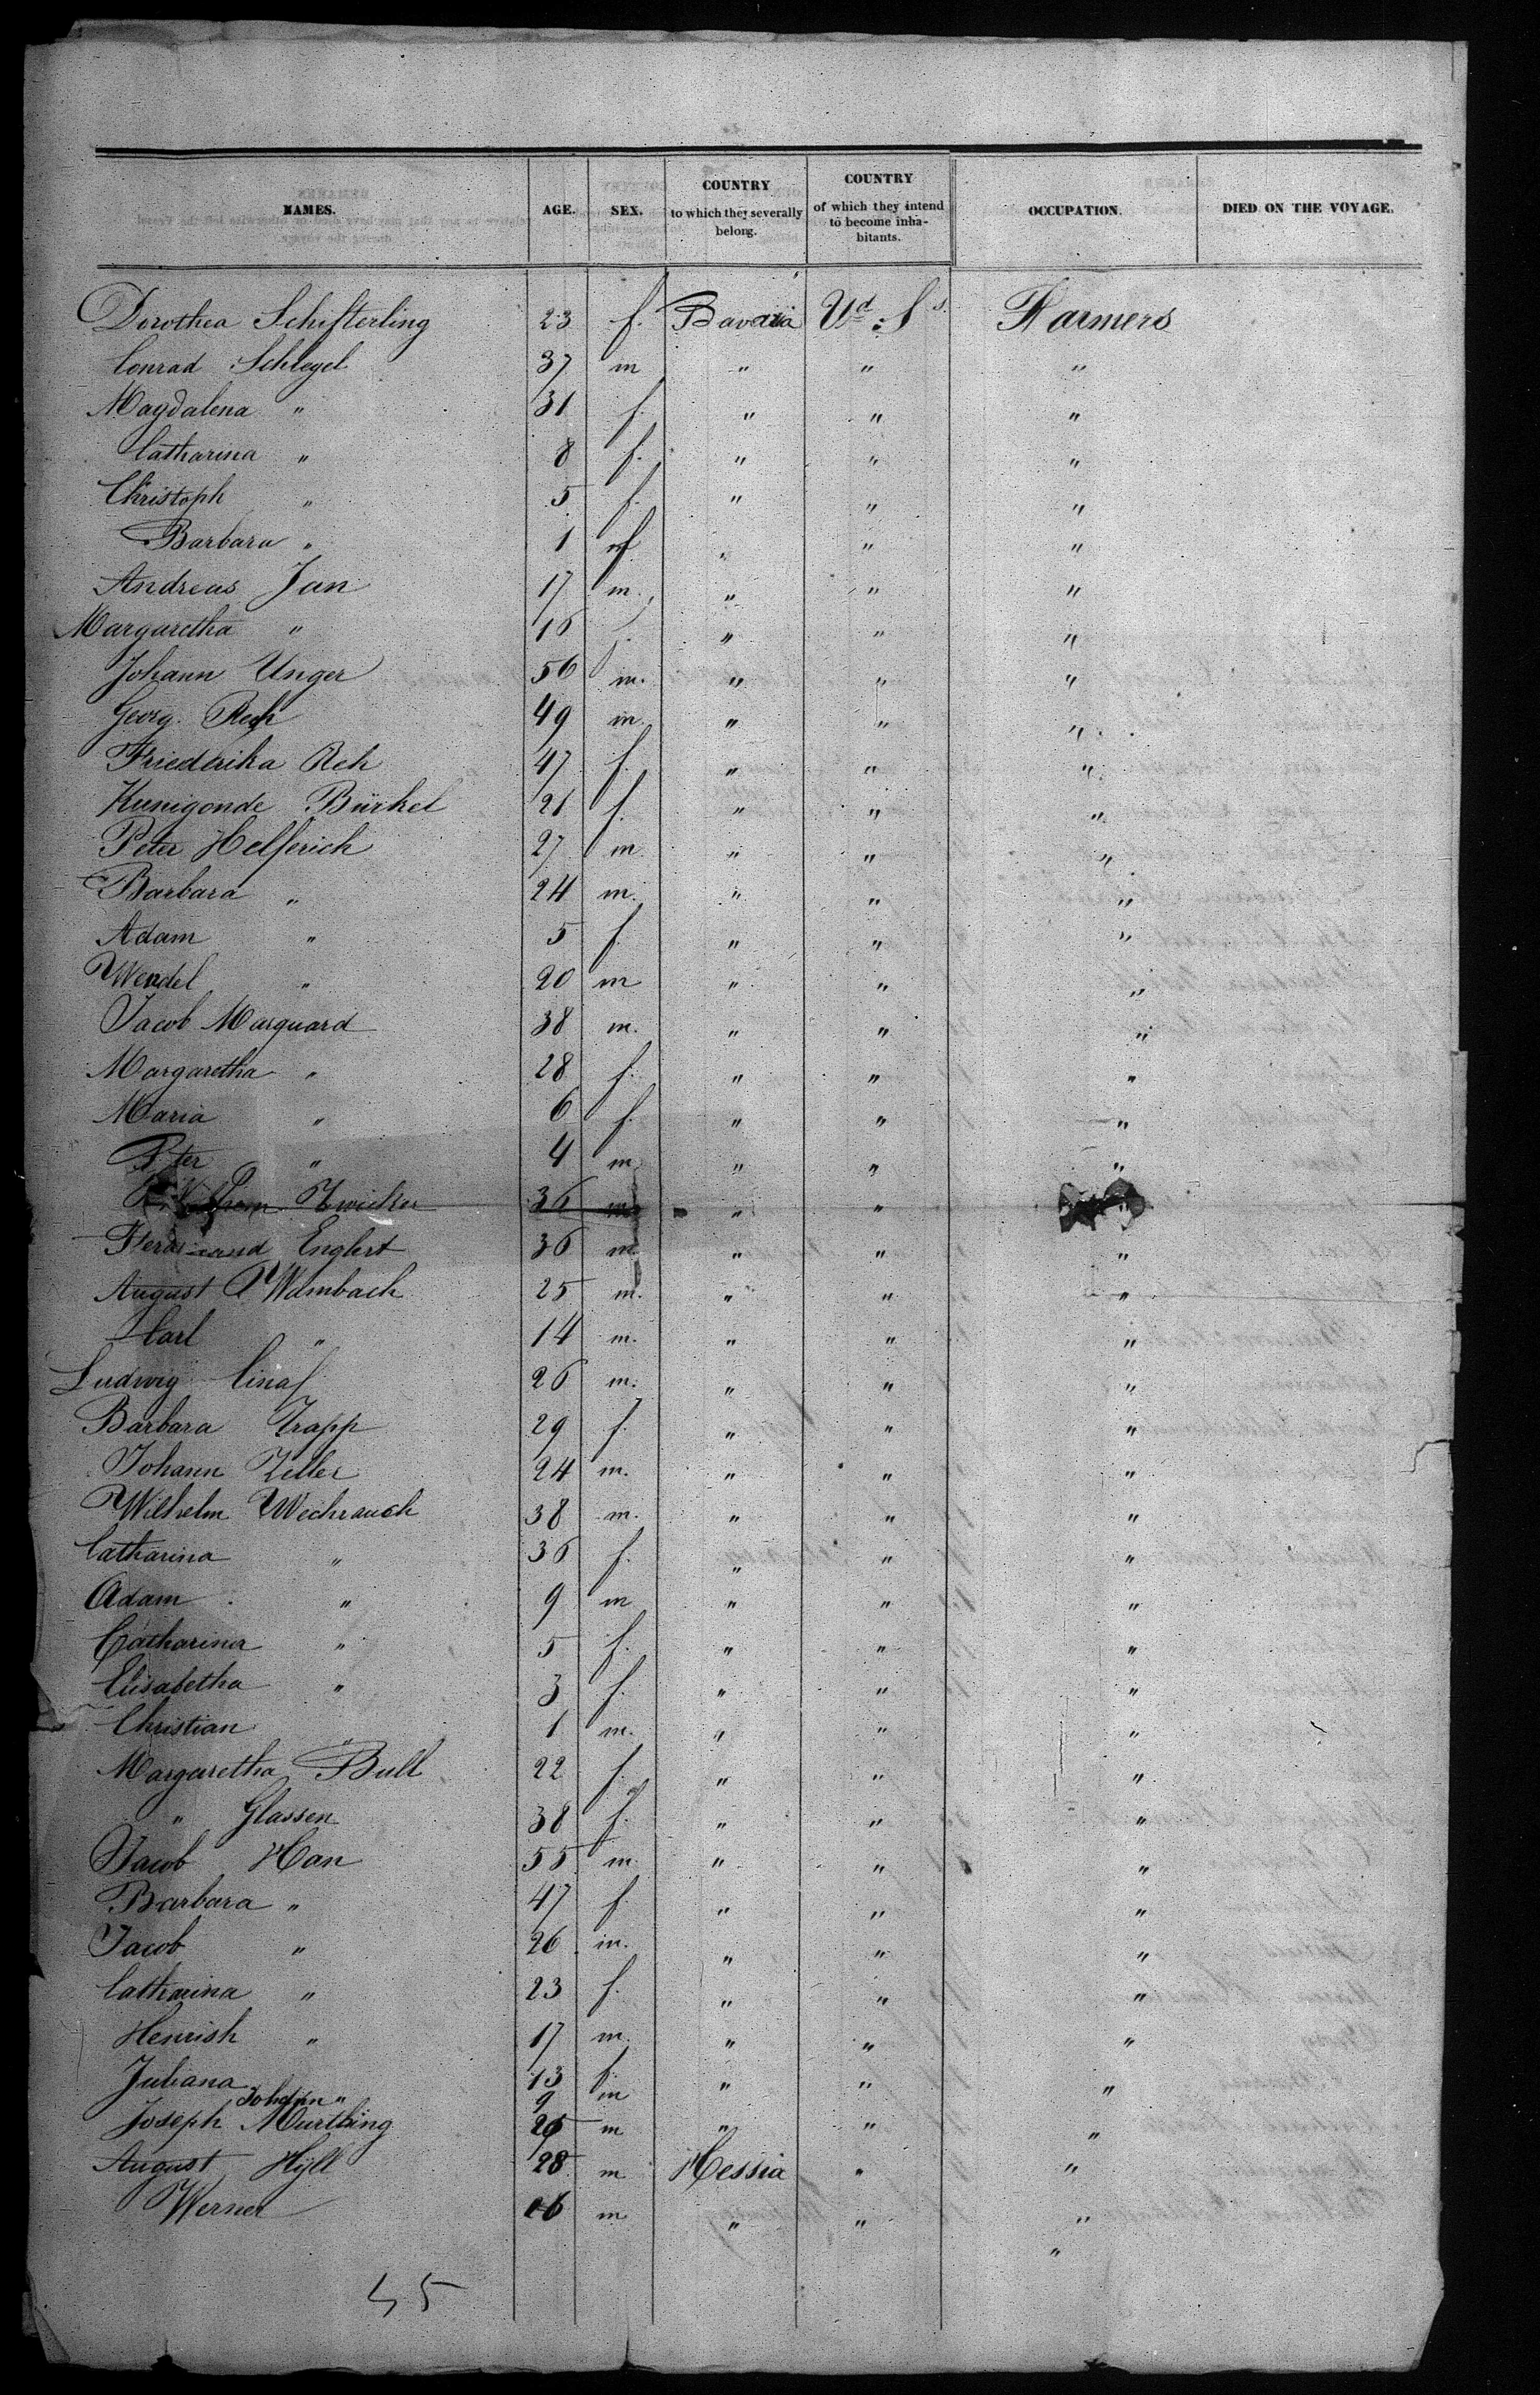 NAMES. AGE. SEX. COUNTRY to which they severally belong. COUNTRY of which they intend to become inhabitants. OCCUPATION. DIED ON THE VOYAGE.
Dorothea Schifterling 23 f. Bavaria Ud. Ss. Farmers
Conrad Schlegel 37 m " " "
Magdalena " 31 f. " " "
Catharina " 8 f. " " "
Christoph " 5 f. " " "
Barbara " 1 f " " "
Andreas Jan 17 m. " " "
Margaretha " 16 f. " " "
Johann Unger 56 m. " " "
Georg Reh 49 m. " " "
Friederika Reh 47 f. " " "
Kunigonde Bürkel 21 f. " " "
Peter Helferich 27 m " " "
Barbara " 24 m. " " "
Adam " 5 f. " " "
Wendel " 20 m " " "
Jacob Marquard 38 m. " " "
Margaretha " 28 f. " " "
Maria " 6 f. " " "
Peter " 4 m " " "
Zwicker 36 m " "
Ferdinand Englert 36 m " " "
August Wambach 25 m. " " "
Carl " 14 m. " " "
Ludwig 26 m. " " "
Barbara Trapp 29 f. " " "
Johann Zeller 24 m. " " "
Wilhelm Wechrauch 38 m. " " "
Catharina " 36 f. " " "
Adam " 9 m " " "
Catharina " 5 f. " " "
Elisabetha " 3 f. " " "
Christian " 1 m. " " "
Margaretha Bull 22 f. " " "
" Glassen 38 f. " " "
Jacob Han 55 m. " " "
Barbara " 47 f " " "
Jacob " 26 m. " " "
Catharina " 23 f. " " "
Henrish " 17 m. " " "
Juliana 13 f. " " "
Johann " 9 m
Joseph Murthing 26 m " " "
August Hyll 28 m Hessia " "
Werner 16 m " " "
"
45